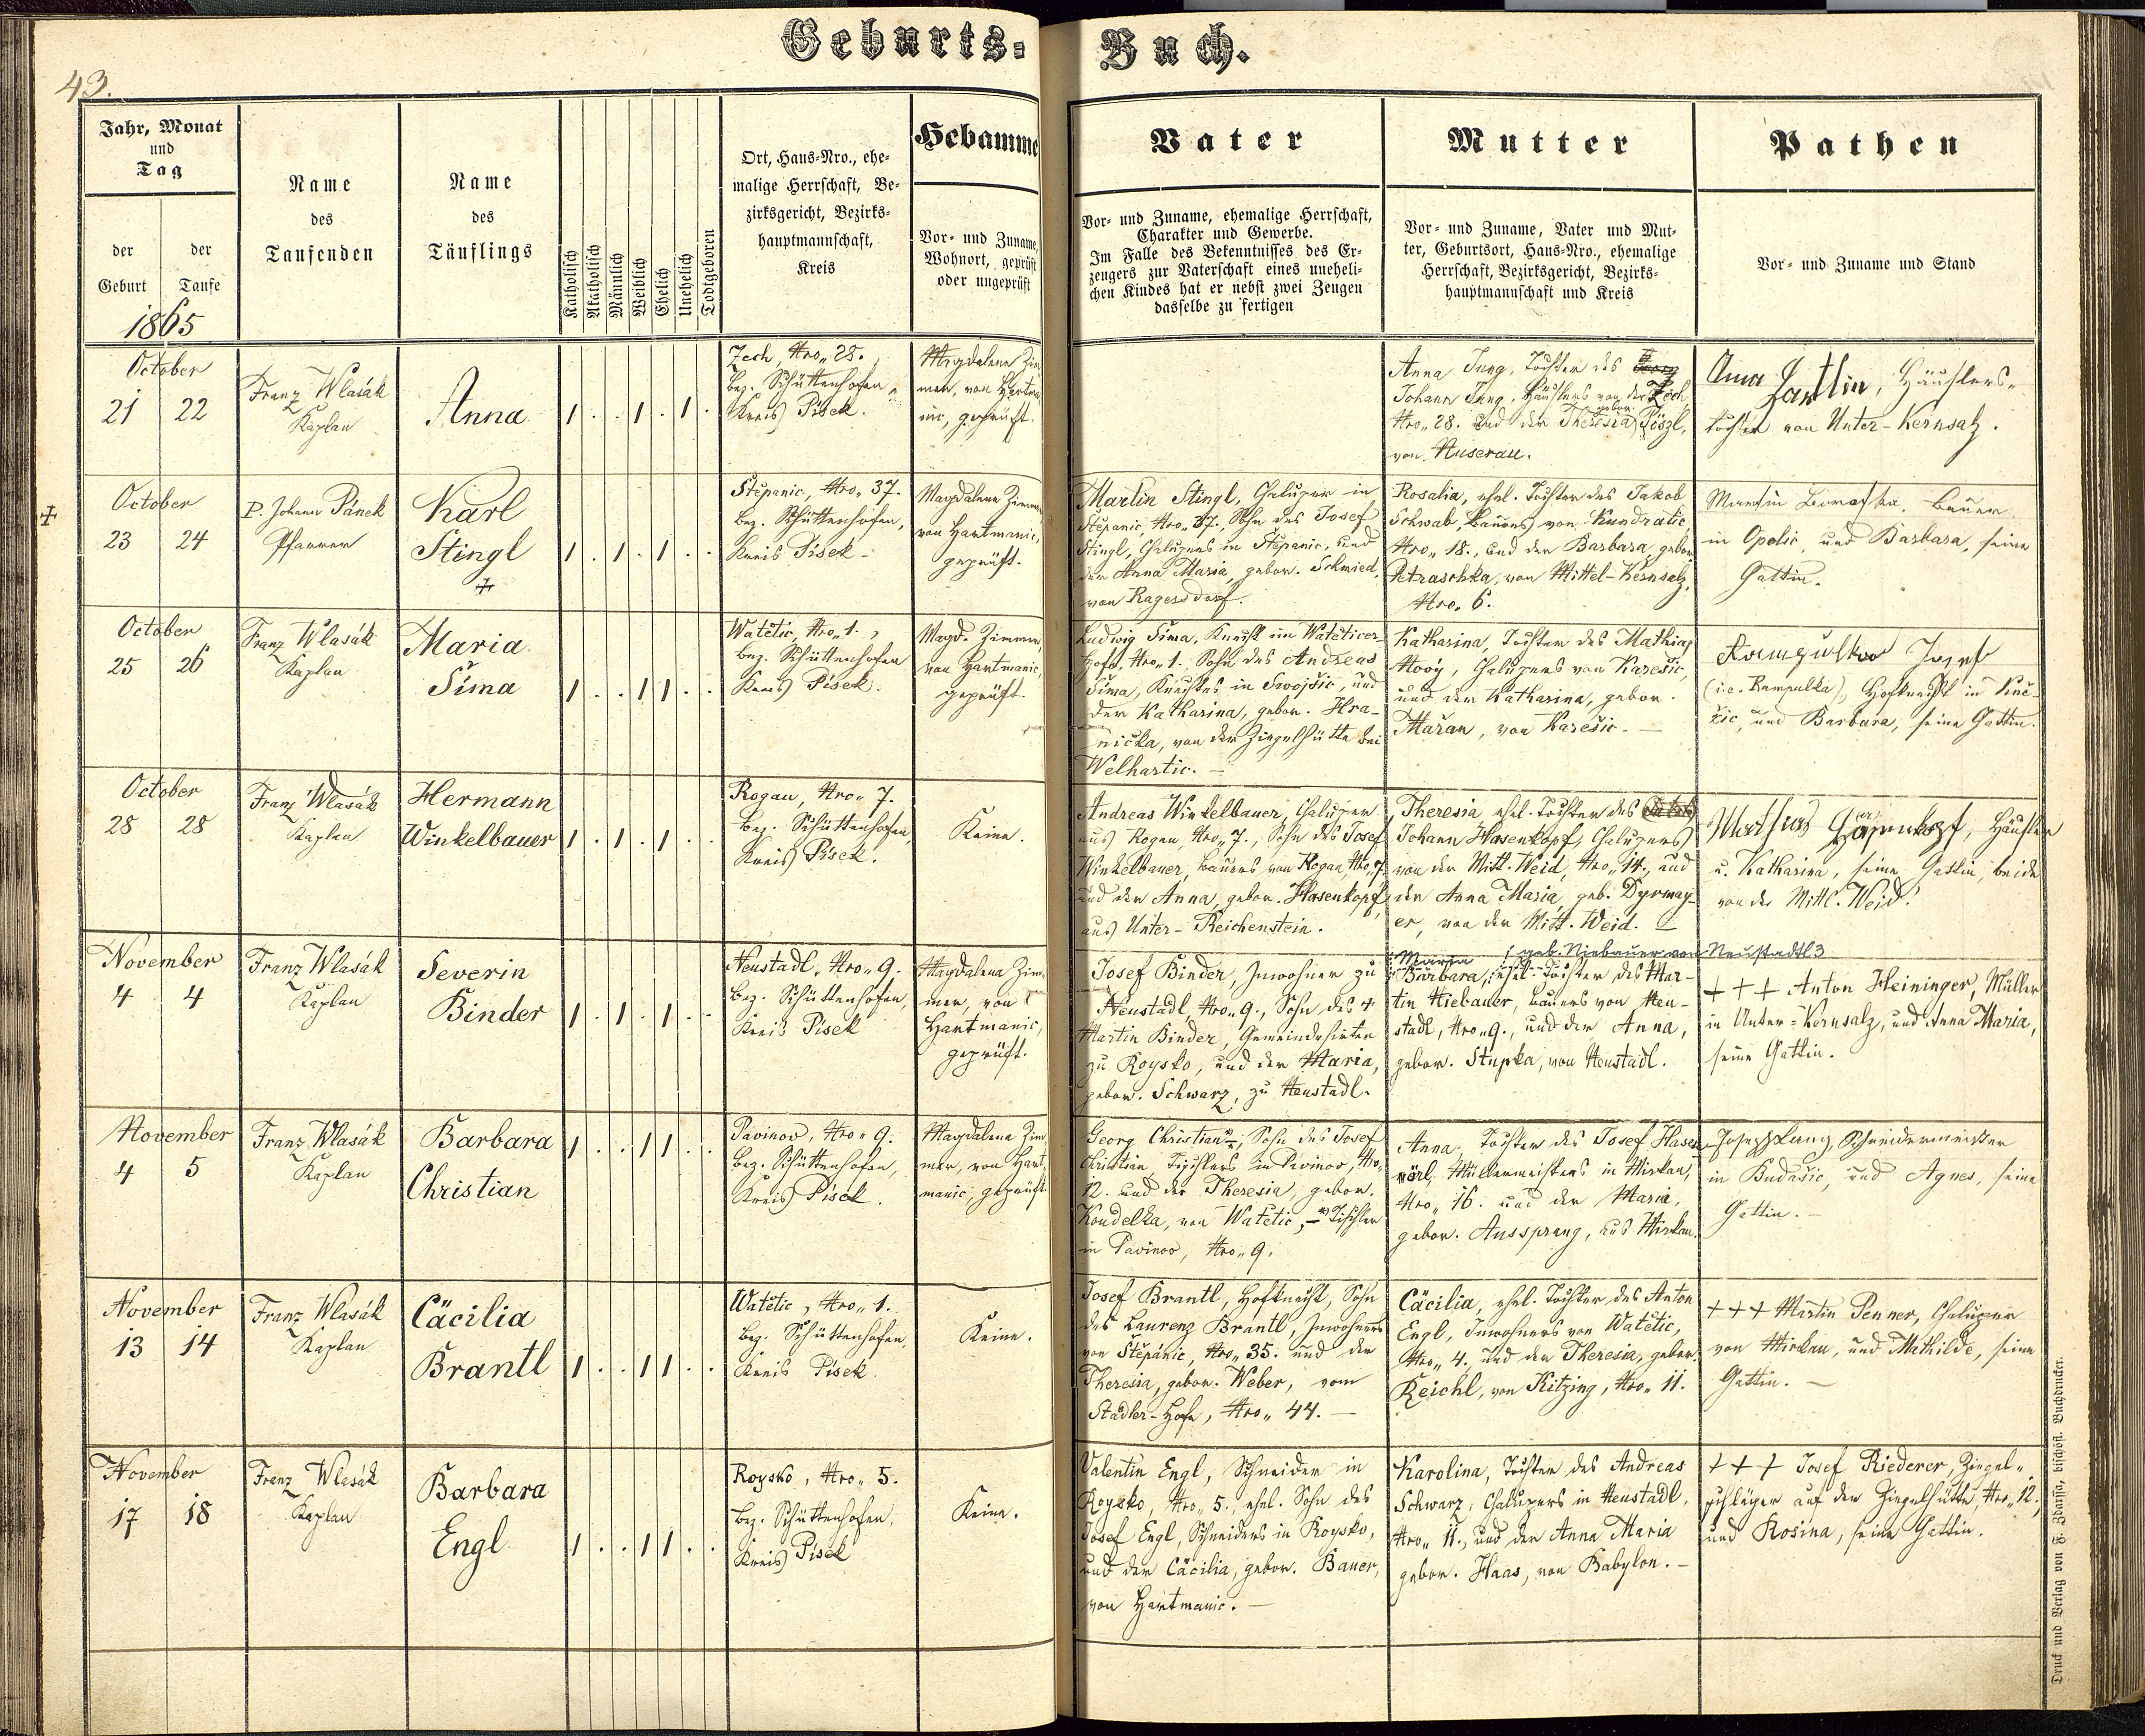 Geburts-Buch.
43.
Jahr, Monat
und
Tag
der Geburt
der Taufe
1865
Name
des
Taufenden
Name
des
Täuflings
Katholisch
Akatholisch
Männlich
Weiblich
Ehelich
Unehelich
Todtgeboren
Ort, Haus-Nro., ehe-
malige Herrschaft, Be-
zirksgericht, Bezirks-
hauptmannschaft,
Kreis
Hebamme
Vor- und Zuname,
Wohnort, geprüft
oder ungeprüft
Vater
Vor- und Zuname, ehemalige Herrschaft,
Charakter und Gewerbe.
Im Falle des Bekenntnisses des Er-
zeugers zur Vaterschaft eines uneheli-
chen Kindes hat er nebst zwei Zeugen
dasselbe zu fertigen
Mutter
Vor- und Zuname, Vater und Mut-
ter, Geburtsort, Haus-Nro., ehemalige
Herrschaft, Bezirksgericht, Bezirks-
hauptmannschaft und Kreis
Pathen
Vor- und Zuname und Stand
October
21 22
Franz Wlasák
Kaplan
Anna
1 . . 1 . 1 .
Zech, Nro. 28.
Bez. Schüttenhofen,
Kreis Písek.
Magdalena Zim-
mer, von Hartma-
nic, geprüft.
Anna Jung, Tochter des Georg
Johann Jung, Häuslers von der Zech
Nro. 28. und der Theresia gebor. Pöszl,
von Nuserau.
Anna Hartlin, Häuslers-
tochter von Unter-Kernsalz.
October
23 24
P. Johann Pánek
Pfarrer
Karl
Stingl
1 . 1 . 1 . .
Stěpanic, Nro. 37.
Bez. Schüttenhofen,
Kreis Písek
Magdalena Zimmer,
von Hartmanic,
geprüft.
Martin Stingl, Chalupper in
Stěpanic, Nro. 37., Sohn des Josef
Stingl, Chaluppers in Stěpanic, und
der Anna Maria, gebor. Schmied,
von Ragersdorf.
Rosalia, ehel. Tochter des Jakob
Schwab, Bauers von Kundratic,
Nro. 18., und der Barbara, gebor.
Petraschka, von Mittel-Kernsalz,
Nro. 6.
Bauer
in Opolic, und Barbara, seine
Gattin.
October
25 26
Franz Wlasák
Kaplan
Maria
Šíma
1 . . 1 1 . .
Watětic, Nro. 1.,
Bez. Schüttenhofen
Kreis Písek.
Magd. Zimmer,
von Hartmanic,
geprüft.
Ludwig Šíma, Knecht im Watěticer
Hofe, Nro. 1., Sohn des Andreas
Šíma, Knechtes in Swojšic, und
der Katharina, gebor. Hra-
nicka, von der Ziegelhütte bei
Welhartic.
Katharina, Tochter des Mathias
Nový, Chaluppers von Karešic,
und der Katharina, gebor.
Mařan, von Karešic.
Rampulka Josef
(i.e. Rampulka), Hofknecht in Kně-
žic, und Barbara, seine Gattin.
October
28 28
Franz Wlasák
Kaplan
Hermann
Winkelbauer
1 . 1 . 1 . .
Rogau, Nro. 7.
Bez. Schüttenhofen,
Kreis Písek.
Keine.
Andreas Winkelbauer, Chalupper
aus Rogau, Nro. 7., Sohn des Josef
Winkelbauer, Bauers von Rogau, Nro. 7
und der Anna, gebor. Hasenkopf,
aus Unter-Reichenstein.
Theresia, ehel. Tochter des
Johann Hasenkopf, Chaluppers
von der Mitt. Weid, Nro. 14., und
der Anna Maria, geb. Dyrmay-
er, von der Mitt. Weid.
Mathias Hasenkopf, Häusler
u. Katharina, seine Gattin, beide
von der Mittl. Weid.
November
4 4
Franz Wlasák
Kaplan
Severin
Binder
1 . 1 . 1 . .
Neustadl, Nro. 9.
Bez. Schüttenhofen,
Kreis Písek
Magdalena Zim-
mer, von
Hartmanic,
geprüft.
Josef Binder, Inwohner zu
Neustadl, Nro. 9., Sohn des †
Martin Binder, Gemeindehirten
zu Roysko, und der Maria,
gebor. Schwarz, zu Neustadl.
Maria geb. Niebauer von Neustadtl 3
Barbara, ehel. Tochter des Mar-
tin Niebauer, Bauers von Neu-
stadl, Nro. 9., und der Anna,
gebor. Stupka, von Neustadl.
+++ Anton Heininger, Müller
in Unter-Kernsalz, und Anna Maria,
seine Gattin.
November
4 5
Franz Wlasák
Kaplan
Barbara
Christian
1 . . 1 1 . .
Pavinov, Nro. 9.
Bez. Schüttenhofen,
Kreis Písek.
Magdalena Zim-
mer, von Hart-
manic, geprüft
Georg Christian, Sohn des Josef
Christian, Tischlers in Pavinov, Nro.
12. und der Theresia, gebor.
Koudelka, von Watětic, – Tischler
in Pavinov, Nro. 9.
Anna, Tochter des Josef Hasen-
örl, Müllermeisters in Mirkau,
Nro. 16. und der Maria,
gebor. Aussprung, aus Mirkau.
Josef Lang, Schneidermeister
in Budašic, und Agnes, seine
Gattin.
November
13 14
Franz Wlasák
Kaplan
Cäcilia
Brantl
1 . . 1 1 . .
Watětic, Nro. 1.
Bez. Schüttenhofen,
Kreis Písek
Keine.
Josef Brantl, Hofknecht, Sohn
des Laurenz Brantl, Inwohners
von Stěpánic, Nro. 35. und der
Theresia, gebor. Weber, vom
Stadler-Hofe, Nro. 44.
Cäcilia, ehel. Tochter des Anton
Engl, Inwohners von Watětic,
Nro. 4. und der Theresia, gebor.
Reichl, von Kitzing, Nro. 11.
+++ Martin Penner, Chalupper
von Mirkau, und Mathilde, seine
Gattin.
November
17 18
Franz Wlasák
Kaplan
Barbara
Engl
1 . . 1 1 . .
Roysko, Nro. 5.
Bez. Schüttenhofen,
Kreis Písek
Keine.
Valentin Engl, Schneider in
Roysko, Nro. 5., ehel. Sohn des
Josef Engl, Schneiders in Roysko,
und der Cäcilia, gebor. Bauer,
von Hartmanic.
Karolina, Tochter des Andreas
Schwarz, Chaluppers in Neustadl,
Nro. 11., und der Anna Maria
gebor. Haas, von Babylon.
+++ Josef Riederer, Ziegel-
schläger auf der Ziegelhütte, Nro. 12.,
und Rosina, seine Gattin.
Druck und Verlag von F. Zdarssa, bischöfl. Buchdrucker.